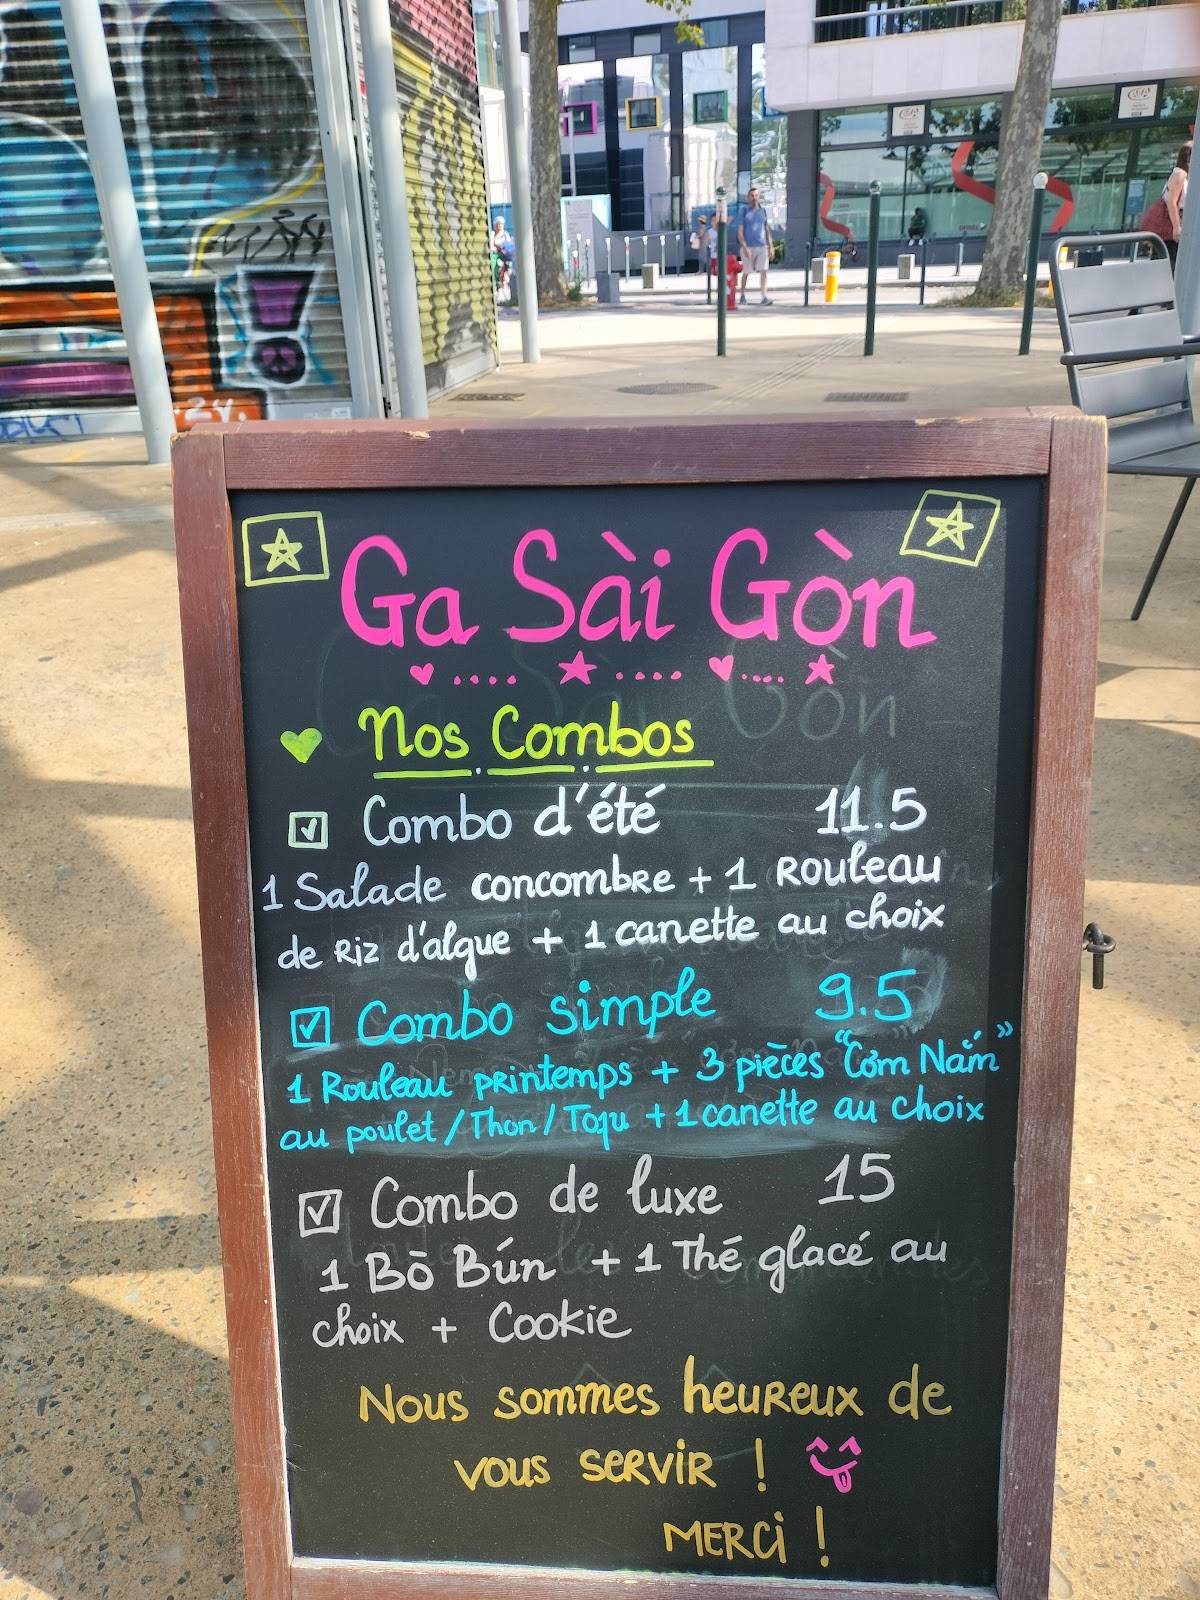 Ga Sài Gòn
Nos Combos
Combo d'été 11.5
1 Salade concombre + 1 Rouleau
de Riz d'algue + 1 canette au choix
Combo simple 9.5
1 Rouleau printemps + 3 pièces "Cơm Nắm"
au poulet / Thon / Tofu + 1 canette au choix
Combo de luxe 15
1 Bò Bún + 1 Thé glacé au
choix + Cookie
Nous sommes heureux de
vous servir !
MERCi !